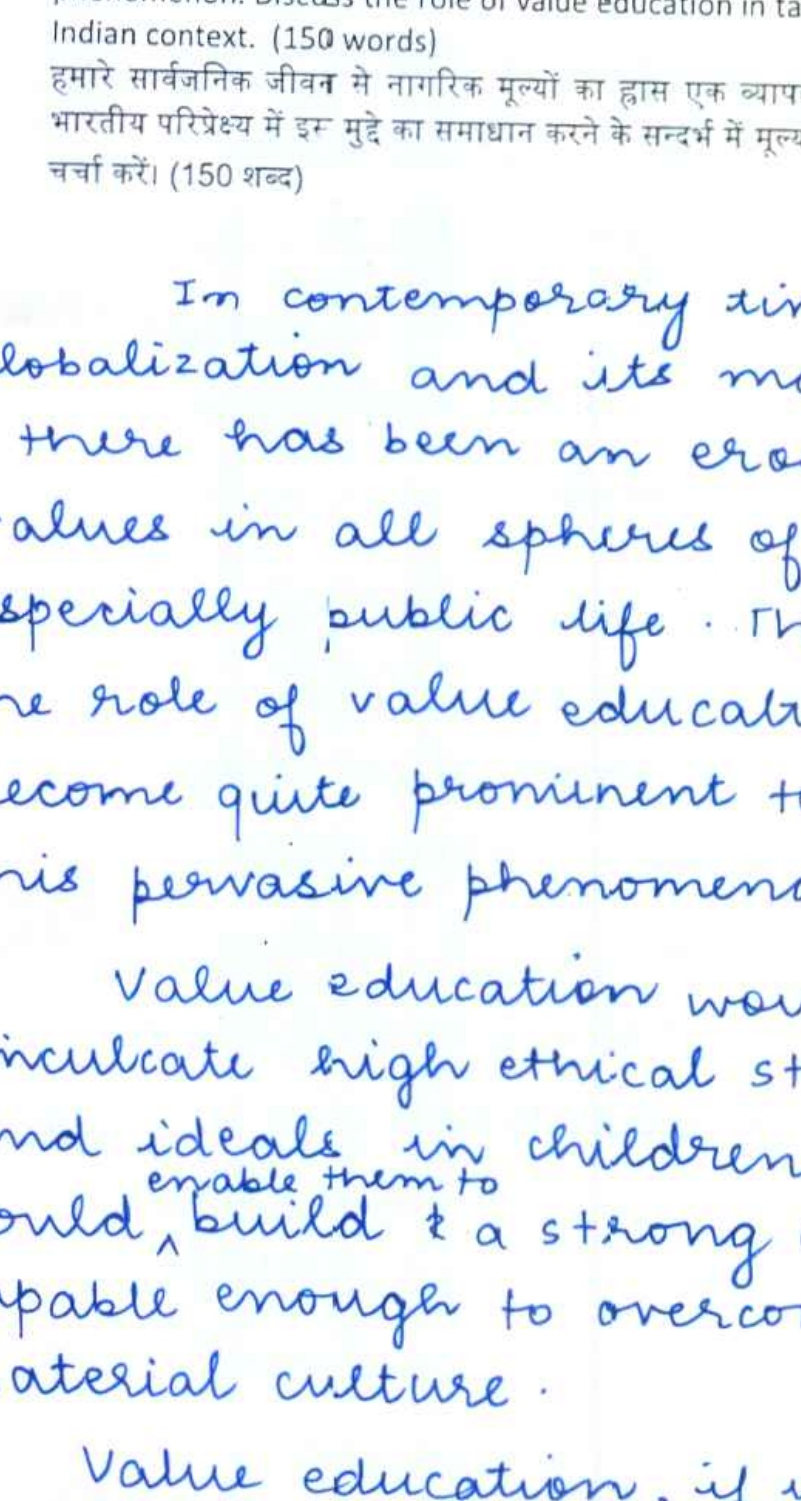 phenomenon. Discuss the role of value education in ta
Indian context. (150 words)
हमारे सार्वजनिक जीवन से नागरिक मूल्यों का ह्रास एक व्याप
भारतीय परिप्रेक्ष्य में इस मुद्दे का समाधान करने के सन्दर्भ में मूल्य
चर्चा करें। (150 शब्द)
In contemporary tim
lobalization and its m
there has been an ero
alues in all spheres of
specially public life. Th
he role of value educat
ecome quite prominent t
his pervasive phenomeno
Value education wou
inculcate high ethical st
nd ideals in children
enable them to
ould ^ build t a strong
apable enough to overco
aterial culture.
Value education, if